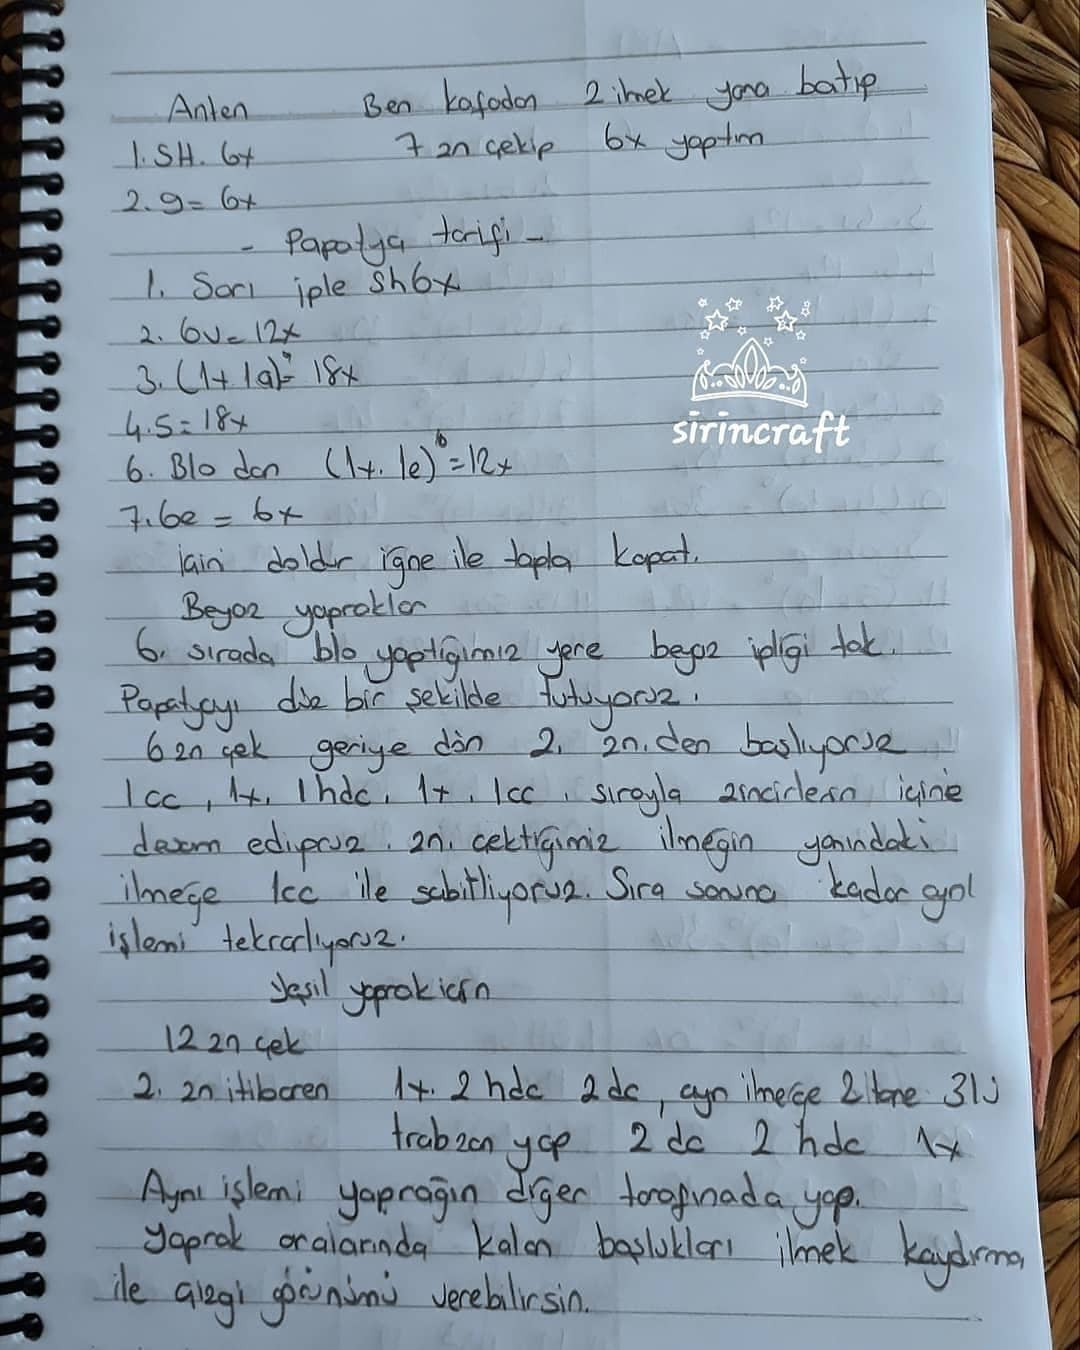 Anten Ben kafadan 2 ilmek yana batıp
1. SH. 6x 7 zn çekip 6x yaptım
2. 9= 6x
- Papatya tarifi -
1. Sarı iple Sh6x
2. 6v= 12x
3. (1x 1a)= 18x
4.5= 18x
6. Blo dan (1x. 1e)⁶=12x
7.6e = 6x
için doldur iğne ile topla kapat.
Beyaz yapraklar
6. sırada blo yaptığımız yere beyaz ipliği tak.
Papatyayı düz bir şekilde tutuyoruz.
6 zn çek geriye dön 2. zn.den başlıyoruz
1cc, 1x, 1hdc, 1x, 1cc, sırayla zincirlerin içine
devam ediyoruz. zn. çektiğimiz ilmeğin yanındaki
ilmeğe 1cc ile sabitliyoruz. Sıra sonuna kadar aynı
işlemi tekrarlıyoruz.
Yeşil yaprak için
12 zn çek
2. zn itibaren 1x. 2 hdc 2 dc, aynı ilmeğe 2 tane 3lü
trabzan yap 2 dc 2 hdc 1x
Aynı işlemi yaprağın diğer tarafınada yap.
Yaprak aralarında kalan başlukları ilmek kaydırma
ile çizgi görünümü verebilirsin.
sirincraft